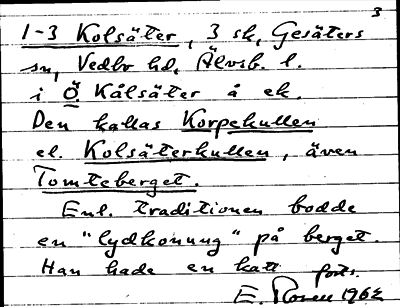 3
1-3 Kolsäter, 3 sk, Gesäters
sn, Vedbo hd, Älvsb. l.
i Ö. Kålsäter å ek.
Den kallas Korpekullen
el. Kolsäterkullen, även
Tomteberget.
Enl. traditionen bodde
en "lydkonung" på berget.
Han hade en katt forts.
E. Rosén 1962